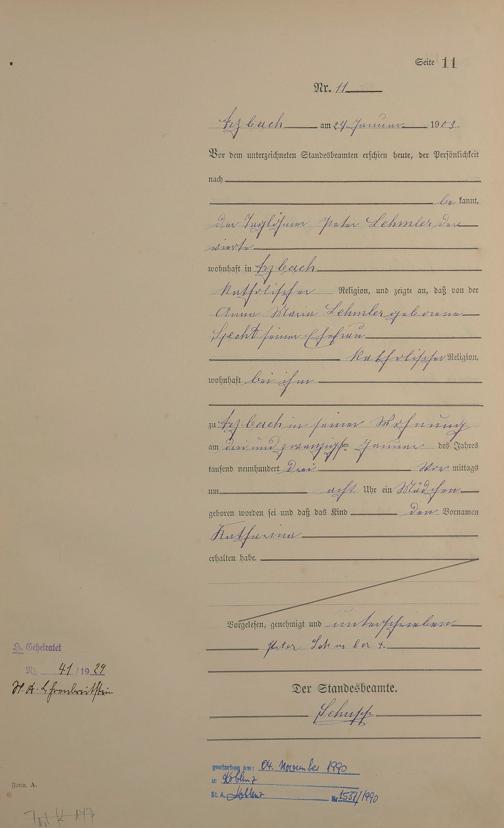 Seite 11
Nr. 11
Arzbach am 24 Januar 1903.
Vor dem unterzeichneten Standesbeamten erschien heute, der Persönlichkeit
nach
be kannt,
der Taglöhner Peter Lehmler der
vierte
wohnhaft in Arzbach
katholischer Religion, und zeigte an, daß von der
Anna Maria Lehmler geborene
Specht seiner Ehefrau
katholischer Religion,
wohnhaft bei ihm
zu Arzbach in seiner Wohnung
am drei und zwanzigsten Januar des Jahres
tausend neunhundert drei Vor mittags
um acht Uhr ein Mädchen
geboren worden sei und daß das Kind den Vornamen
Katharina
erhalten habe.
Vorgelesen, genehmigt und unterschrieben
Peter
Der Standesbeamte.
H. Geheiratet
Nr. 41/1929
St. A. Ehrenbreitstein
gestorben am: 04. November 1990
in Koblenz
St. A. Koblenz Nr. 1531/1990
Form. A.